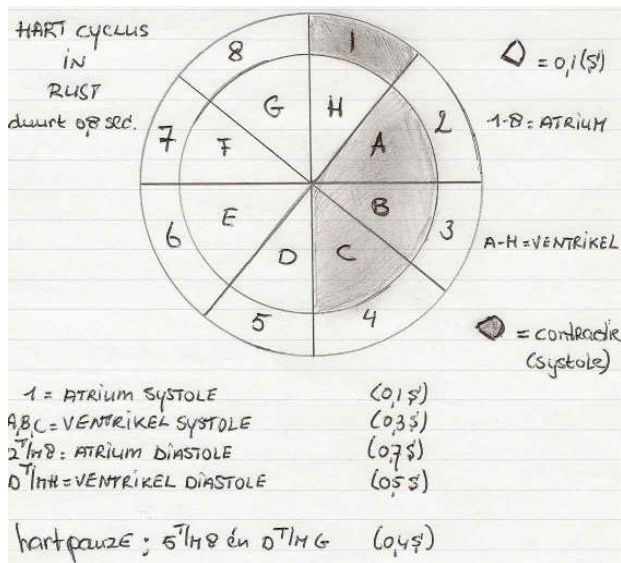 HART CYCLUS
IN
RUST
duurt 0,8 sec.
= 0,1 (S)
1-8 = ATRIUM
A-H = VENTRIKEL
= contractie
(systole)
1
2
3
4
5
6
7
8
A
B
C
D
E
F
G
H
1 = ATRIUM SYSTOLE (0,1 S)
A,B,C = VENTRIKEL SYSTOLE (0,3 S)
2 T/M 8 : ATRIUM DIASTOLE (0,7 S)
D T/M H = VENTRIKEL DIASTOLE (0,5 S)
hartpauze ; 5 T/M 8 én D T/M G (0,4 S)